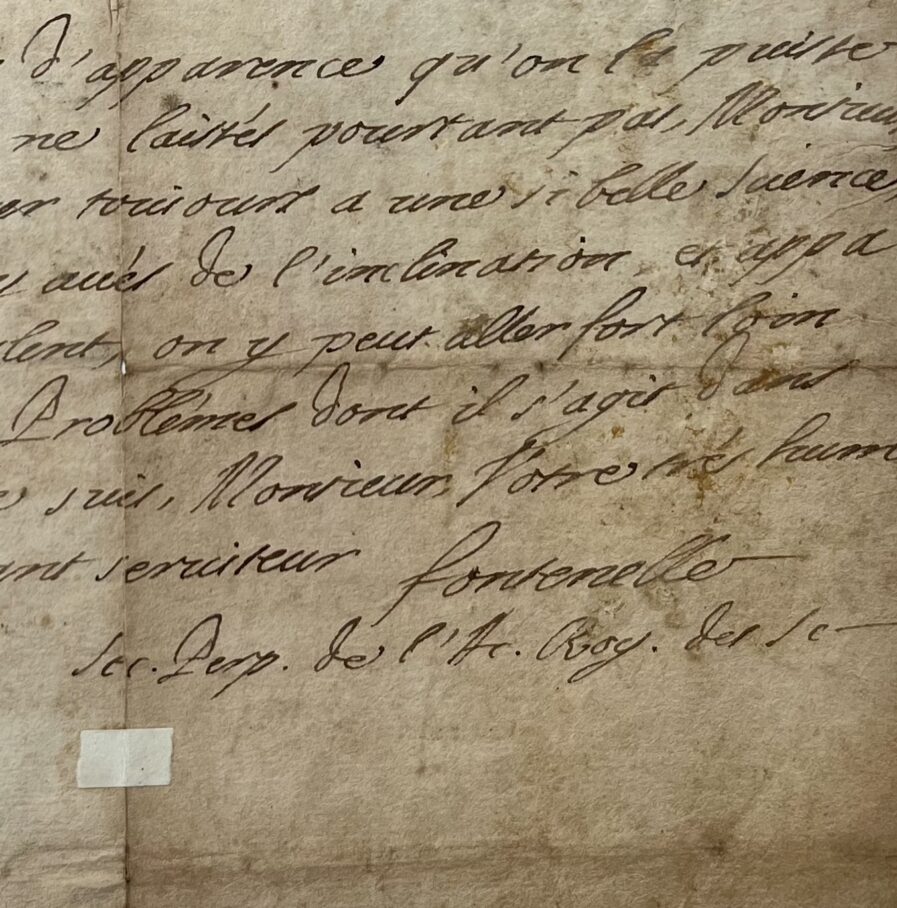 d'apparence qu'on la puisse
ne laissés pourtant pas, Monsieur,
er tousjours a une si belle science,
y avés de l'inclination, et appa
lent, on y peut aller fort loin
Problémes dont il s'agit dans
e suis, Monsieur, Votre trés hum
ant serviteur fontenelle
Sec. Perp. de l'Ac. Roy. des Sc